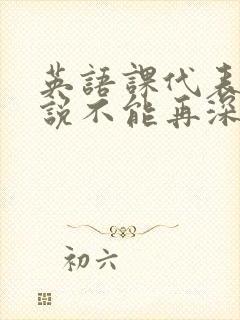 英語課代表
說不能再深
初六